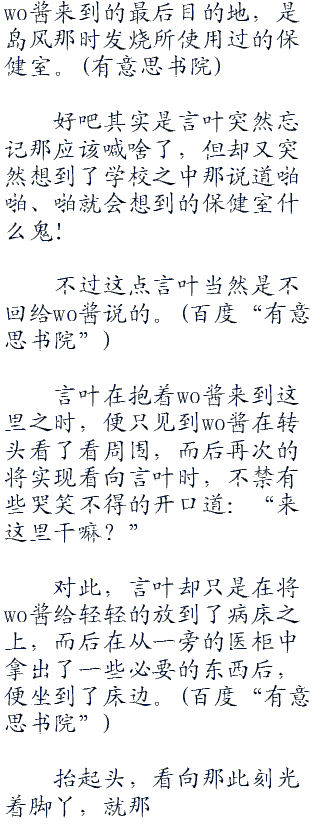 wo酱来到的最后目的地，是
岛风那时发烧所使用过的保
健室。(有意思书院)
好吧其实是言叶突然忘
记那应该喊啥了，但却又突
然想到了学校之中那说道啪
啪、啪就会想到的保健室什
么鬼！
不过这点言叶当然是不
回给wo酱说的。(百度“有意
思书院”)
言叶在抱着wo酱来到这
里之时，便只见到wo酱在转
头看了看周围，而后再次的
将实现看向言叶时，不禁有
些哭笑不得的开口道：“来
这里干嘛？”
对此，言叶却只是在将
wo酱给轻轻的放到了病床之
上，而后在从一旁的医柜中
拿出了一些必要的东西后，
便坐到了床边。(百度“有意
思书院”)
抬起头，看向那此刻光
着脚丫，就那